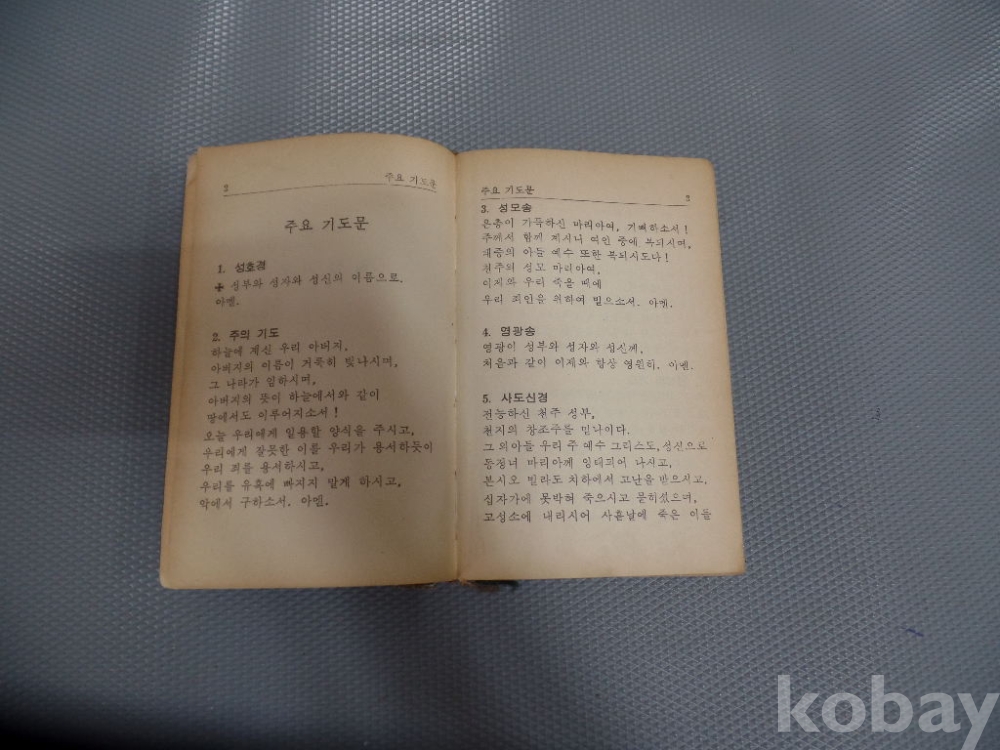 2 주요 기도문
주요 기도문
1. 성호경
✚ 성부와 성자와 성신의 이름으로.
아멘.
2. 주의 기도
하늘에 계신 우리 아버지,
아버지의 이름이 거룩히 빛나시며,
그 나라가 임하시며,
아버지의 뜻이 하늘에서와 같이
땅에서도 이루어지소서!
오늘 우리에게 일용할 양식을 주시고,
우리에게 잘못한 이를 우리가 용서하듯이
우리 죄를 용서하시고,
우리를 유혹에 빠지지 말게 하시고,
악에서 구하소서. 아멘.
주요 기도문 3
3. 성모송
은총이 가득하신 마리아여, 기뻐하소서!
주께서 함께 계시니 여인 중에 복되시며,
태중의 아들 예수 또한 복되시도다!
천주의 성모 마리아여,
이제와 우리 죽을 때에
우리 죄인을 위하여 빌으소서. 아멘.
4. 영광송
영광이 성부와 성자와 성신께,
처음과 같이 이제와 항상 영원히. 아멘.
5. 사도신경
전능하신 천주 성부,
천지의 창조주를 믿나이다.
그 외아들 우리 주 예수 그리스도, 성신으로
동정녀 마리아께 잉태되어 나시고,
본시오 빌라도 치하에서 고난을 받으시고,
십자가에 못박혀 죽으시고 묻히셨으며,
고성소에 내리시어 사흗날에 죽은 이들
kobay